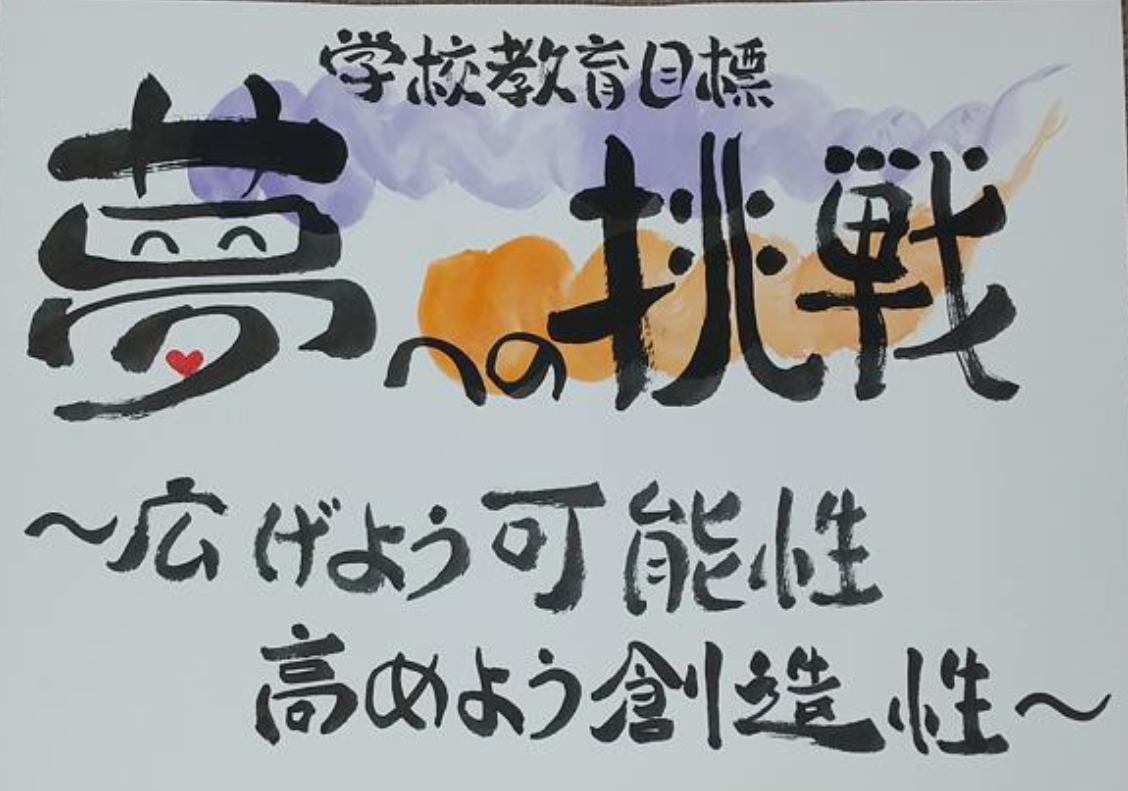 学校教育目標
夢への挑戦
〜広げよう可能性
高めよう創造性〜